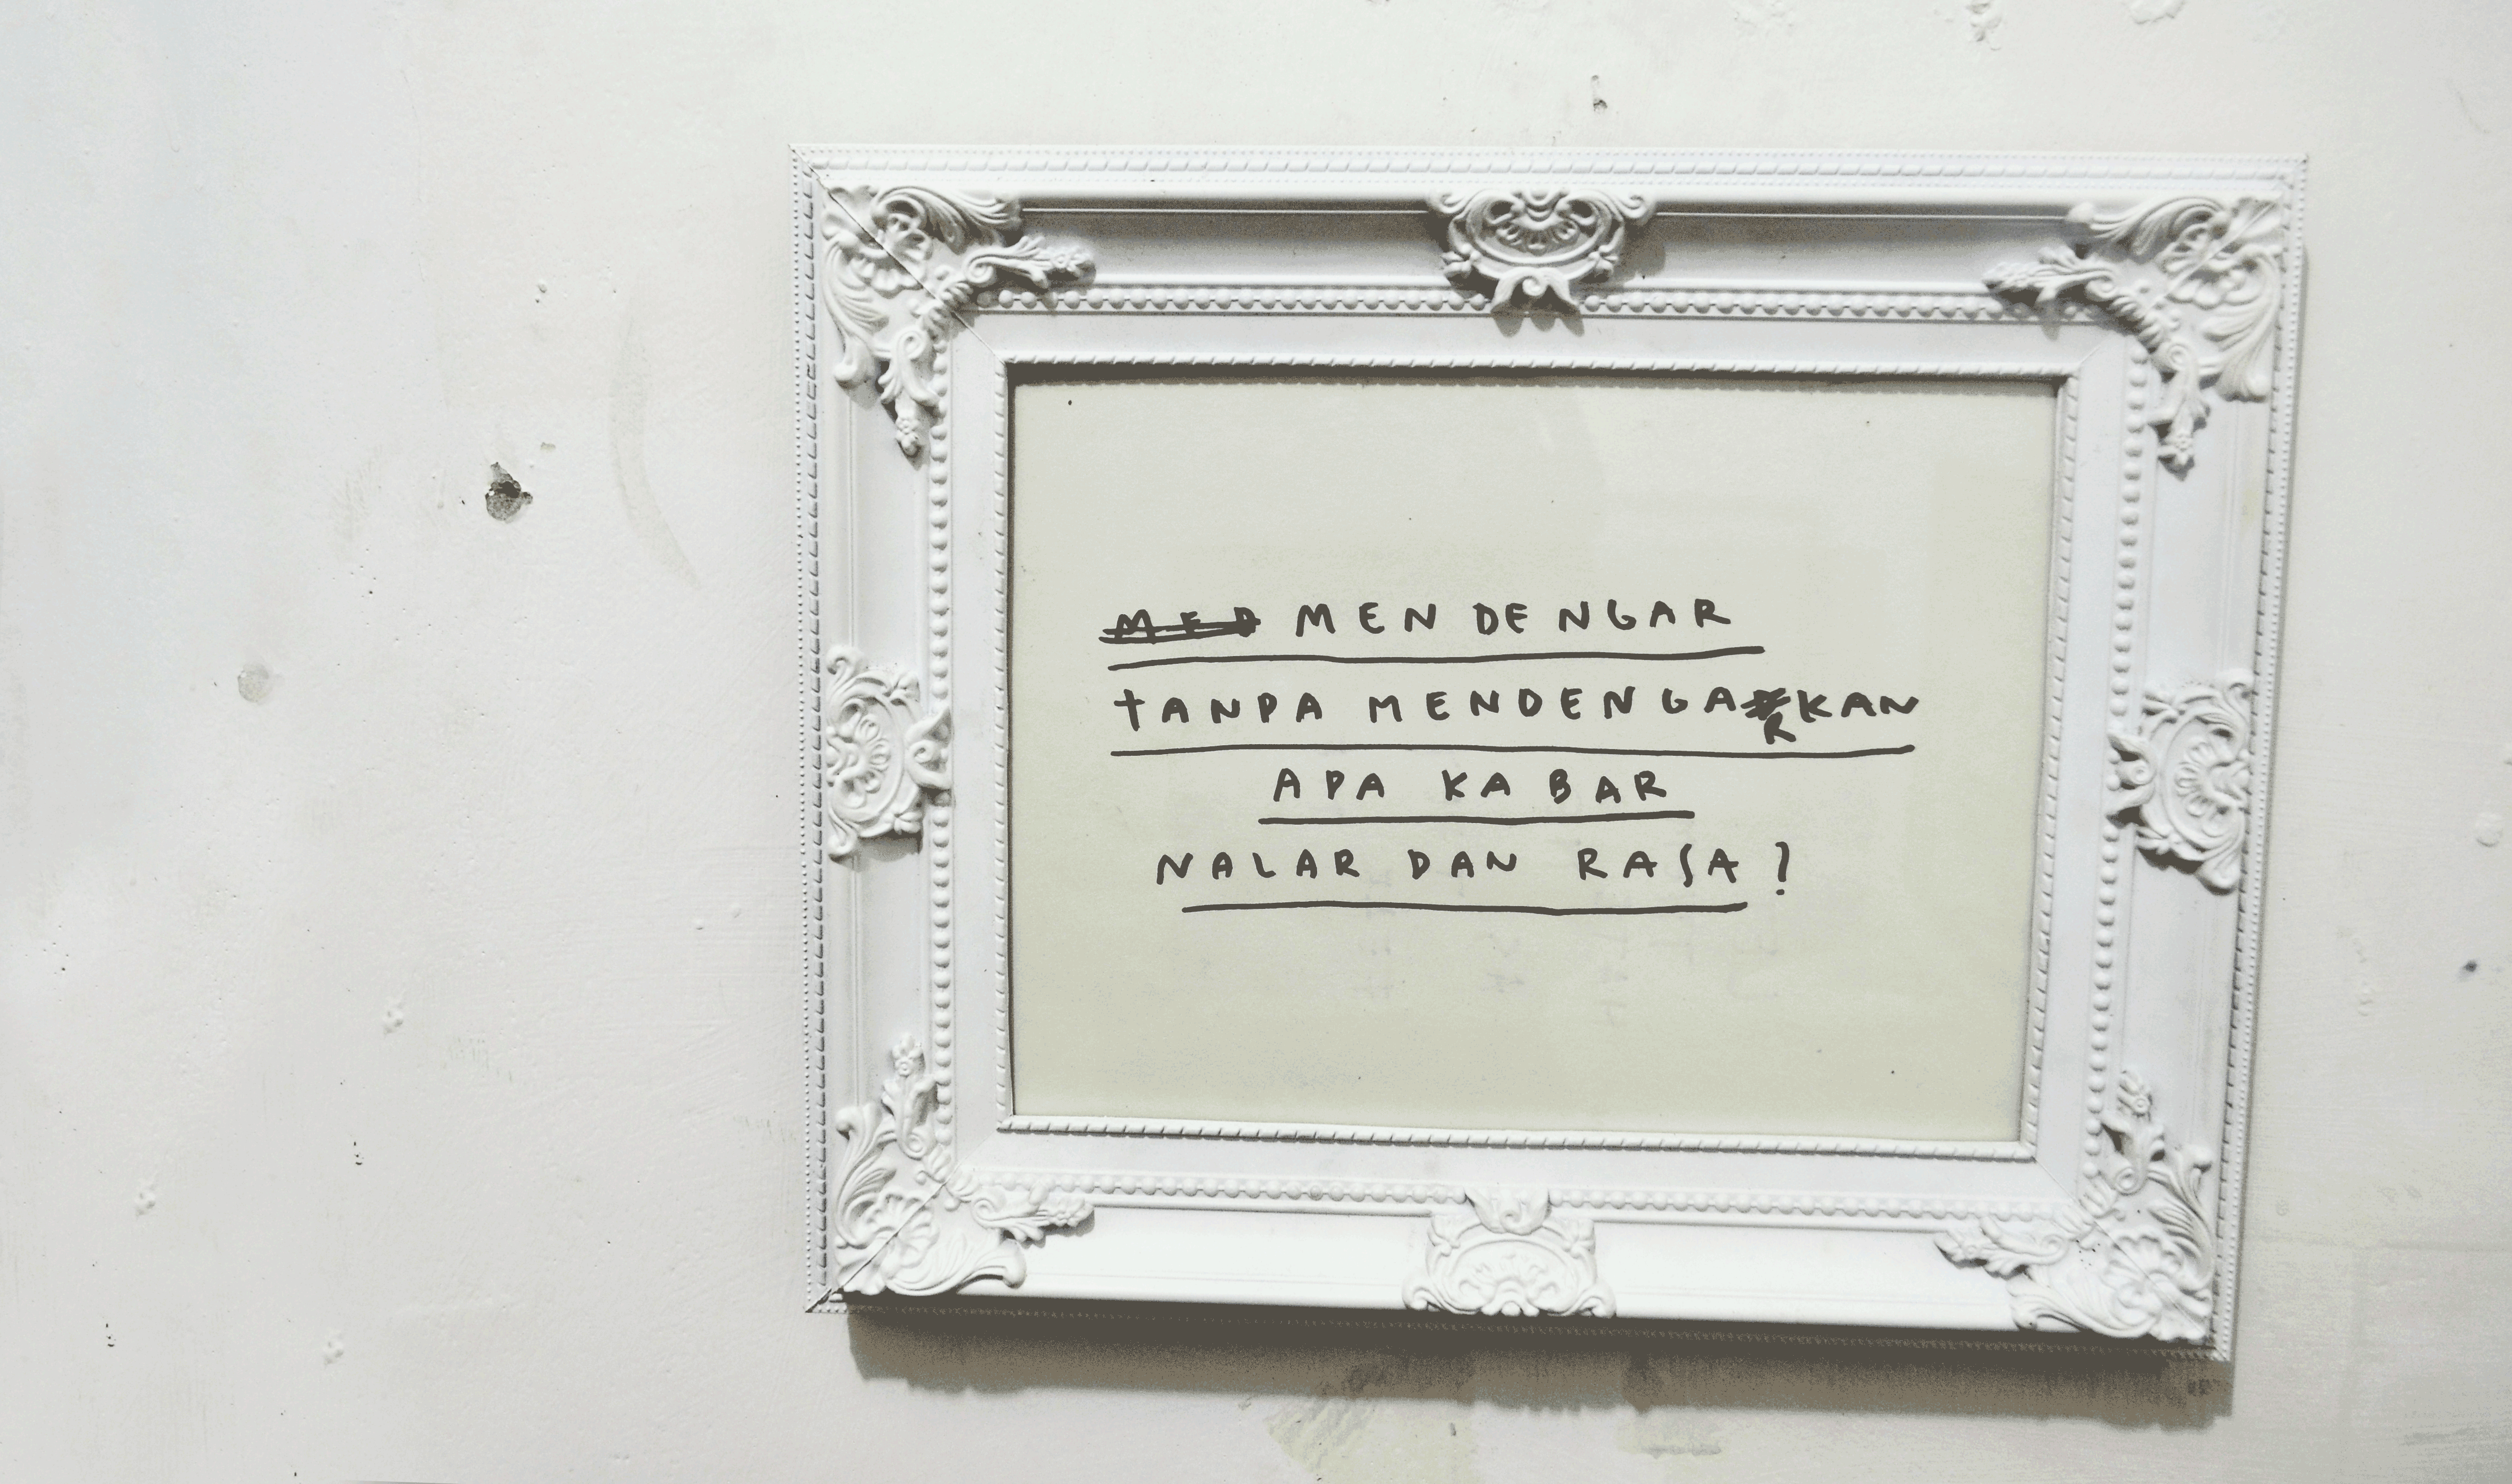 MENDENGAR
TANPA MENDENGARKAN
APA KABAR
NALAR DAN RASA?